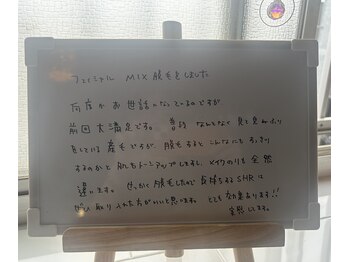 フェイシャル MIX 脱毛をしました
何度かお世話になっているのですが
前回大満足です。普段 なんとなく見て見ぬふり
をしている産毛ですが、脱毛すると こんなにもすっきり
するのかと 肌もトーンアップしますし、メイクのりも全然
違います。せっかく脱毛したので 長持ちするSHRは
取り入れた方がいいと思います。とても効果あります!!